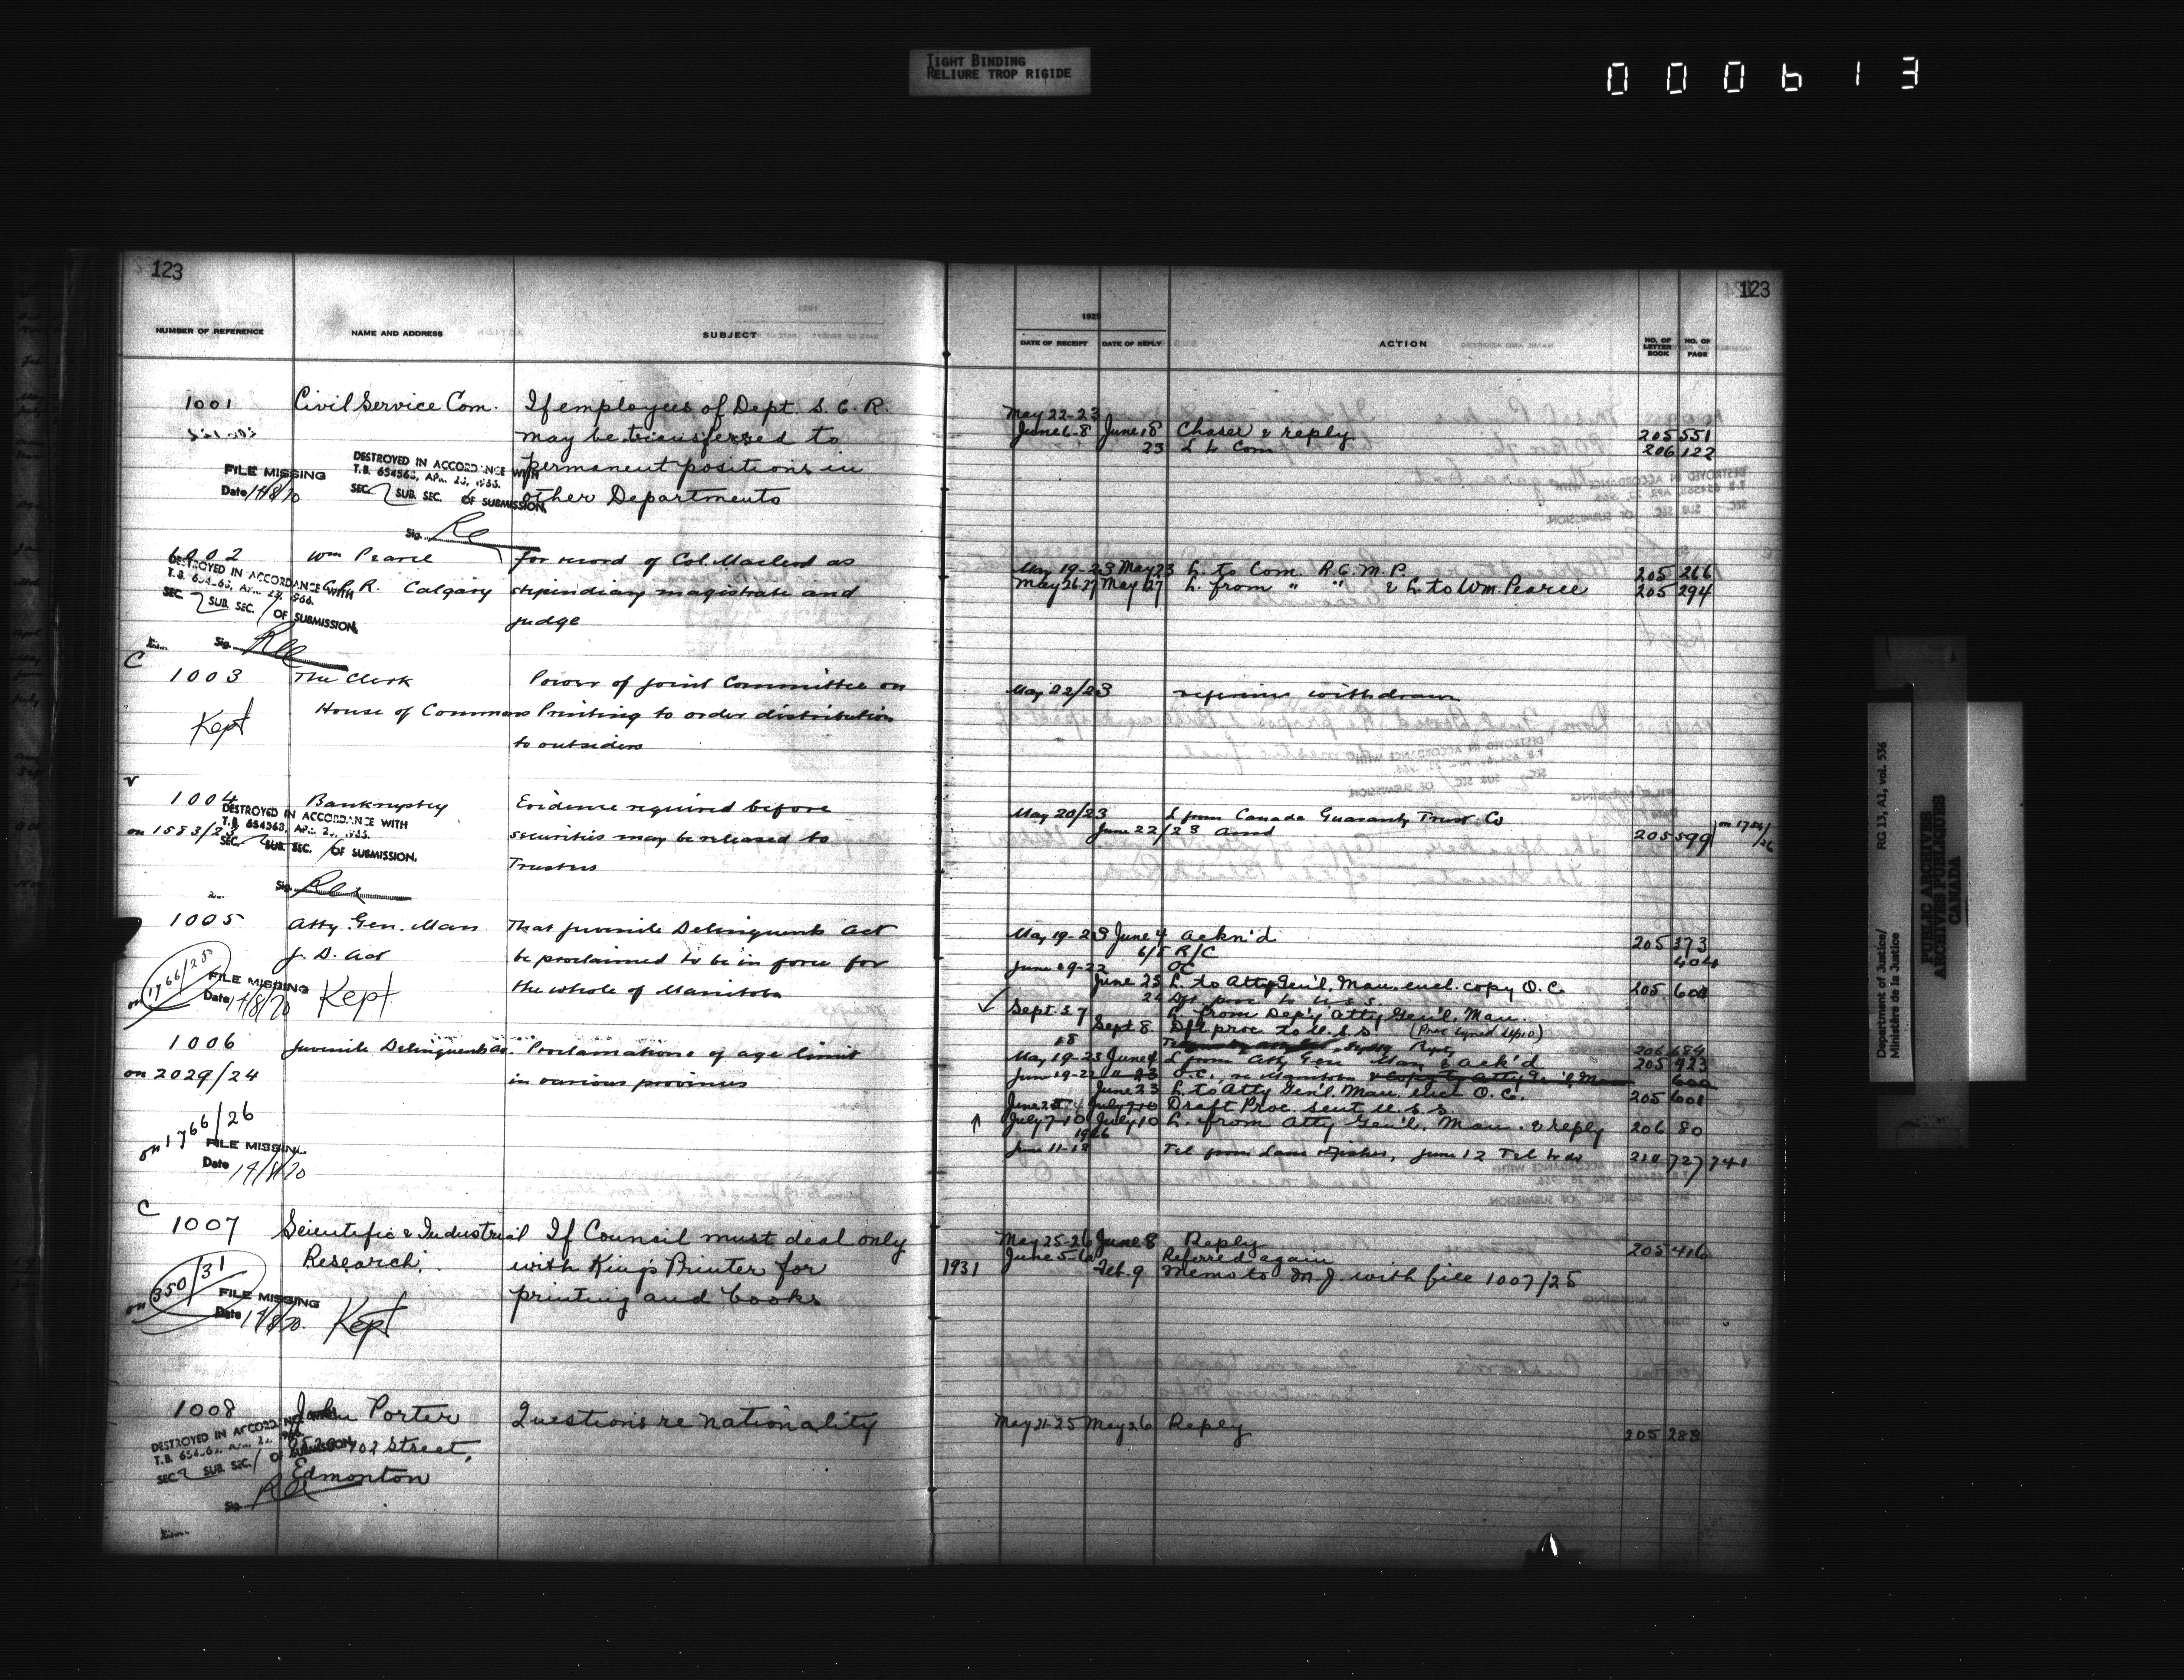 TIGHT BINDING
RELIURE TROP RIGIDE
000613
123
NUMBER OF REFERENCE NAME AND ADDRESS SUBJECT
1001 Civil Service Com. If employees of Dept. S. C. R.
may be transferred to
permanent positions in
other Departments
FILE MISSING
Date 14/8/70
DESTROYED IN ACCORDANCE WITH
T.B. 654563, APR. 23, 1966.
SEC. 2 SUB. SEC. OF SUBMISSION.
Sig.
1002 Wm Pearce For record of Col. Macleod as
C.P.R. Calgary stipendiary magistrate and
judge
DESTROYED IN ACCORDANCE WITH
SEC. 2 SUB. SEC. / OF SUBMISSION.
Sig.
C
1003 The Clerk Power of Joint Committee on
House of Commons Printing to order distribution
to outsiders
Kept
1004 Bankruptcy Evidence required before
on 1583/23 securities may be released to
Trustees
DESTROYED IN ACCORDANCE WITH
T.B. 654563, APR. 23, 1966.
SEC. 2 SUB. SEC. / OF SUBMISSION.
Sig.
1005 Atty. Gen. Man That Juvenile Delinquents Act
J. D. Act be proclaimed to be in force for
the whole of Manitoba
on 1766/25
FILE MISSING
Date 14/8/70 Kept
1006 Juvenile Delinquents Act. Proclamations of age limit
on 2029/24 in various provinces
on 1766/26
FILE MISSING
Date 14/8/70
C
1007 Scientific & Industrial If Council must deal only
Research, with King's Printer for
printing and books
on 350/31
FILE MISSING
Date 14/8/70. Kept
1008 John Porter Questions re nationality
102 Street,
Edmonton
DESTROYED IN ACCORDANCE WITH
SEC. 2 SUB. SEC. / OF SUBMISSION.
Sig.
123
1925
DATE OF RECEIPT DATE OF REPLY ACTION NO. OF LETTER BOOK NO. OF PAGE
May 22-23
June 6-8 June 18 Chaser & reply 205 551
23 L to Com 206 122
May 19-23 May 23 L. to Com. R.C.M.P. 205 266
May 26-27 May 27 L. from " " & L. to Wm. Pearce 205 294
May 22/23 reference withdrawn
May 20/23 L from Canada Guaranty Trust Co
June 22/23 Ansd 205 599
May 19-23 June 4 Ackn'd 205 373
6/5 R/C 404
June 19-22 OC
June 23 L. to Atty Gen'l, Man. encl. copy O.C. 205 600
24 Dft proc to U.S.S.
Sept. 3 7 L. from Dep'y Atty Gen'l, Man.
Sept 8 Dft proc. to U.S.S.
206 684
May 19-23 June 4 L from Atty Gen Man & Ack'd 205 423
June 19-22 " 23 O.C. re Manitoba & Copy to Atty Gen'l, Man 600
June 23 L. to Atty Gen'l, Man. encl O.C. 205 601
Draft Proc. sent U.S.S.
July 7-10 July 10 L. from Atty Gen'l, Man. & reply 206 80
1926
June 11-12 June 12 Tel to do 210 727 741
May 25-26 June 8 Reply 205 416
June 5-6 Referred again
1931 Feb. 9 Memo to M.J. with file 1007/25
May 21-25 May 26 Reply 205 283
Department of Justice/
Ministère de la Justice
RG 13, A1, vol. 536
PUBLIC ARCHIVES
ARCHIVES PUBLIQUES
CANADA